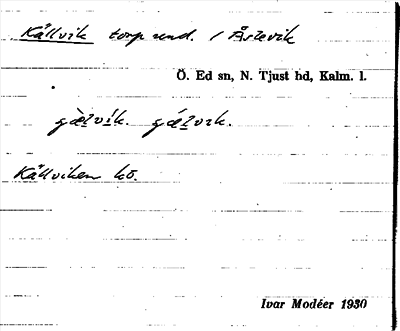 Källvik torp und. / Åslevik
Ö. Ed sn, N. Tjust hd, Kalm. l.
gæ̀lvík. gǽlvik.
Källviken kö.
Ivar Modéer 1930